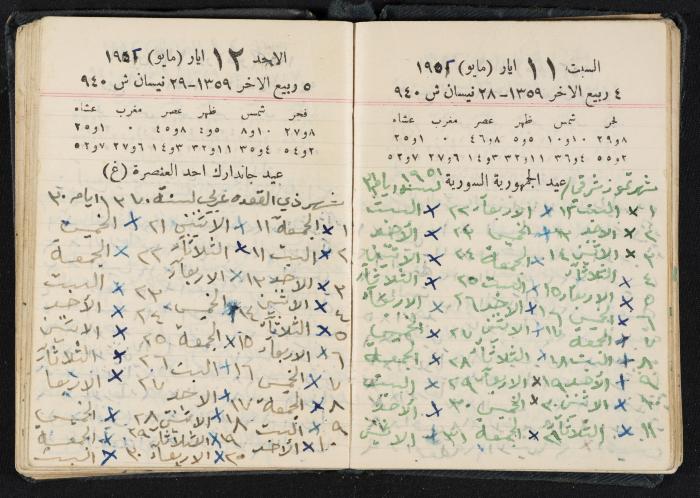 السبت ١١ ايار (مايو)
٤ ربيع الاخر ١٣٥٩ – ٢٨ نيسان ش ٩٤٠
فجر شمس ظهر عصر مغرب عشاء
٨و٢٩ ١٠و١٠ ٥و٨ ٨و٤٦ ٠ ١و٢٥
٢و٥٥ ٤و٣٦ ١١و٣٢ ٣و١٤ ٦و٢٧ ٧و٥٢
عيد الجمهورية السورية
شهر تموز شرقي ١٩٥١
١ السبت ١٢ x الاربعاء ٢٢ x السبت
٢ الاحد ١٣ x الخميس ٢٣ x الاحد
٣ الاثنين ١٤ x الجمعة ٢٤ x الاثنين
٤ الثلاثاء x السبت ٢٥ x الثلاثاء
٥ الاربعاء ١٥ x الاحد ٢٦ x الاربعاء
٦ الخميس ١٦ x الاثنين ٢٧ x الخميس
٧ الجمعة
٨ السبت ١٨ x الثلاثاء ٢٨ x الجمعة
٩ الاحد ١٩ x الاربعاء ٢٩ x السبت
١٠ الاثنين ٢٠ x الخميس ٣٠ x الاحد
١١ الثلاثاء ٢١ x الجمعة ٣١ x الاثنين
الاحد ١٢ ايار (مايو)
٥ ربيع الاخر ١٣٥٩ – ٢٩ نيسان ش ٩٤٠
فجر شمس ظهر عصر مغرب عشاء
٨و٢٧ ١٠و٨ ٥و٤ ٨و٤٥ ٠ ١و٢٥
٢و٥٤ ٤و٣٥ ١١و٣٢ ٣و١٤ ٦و٢٧ ٧و٥٢
عيد جاندارك احد العنصرة (غ)
شهر ذي القعده عربي لسنة ١٣٧٠ ايامه ٣٠
١ x الجمعة ١١ x الاثنين ٢١ x الخميس
٢ x السبت x الثلاثاء ٢٢ x الجمعة
٣ x الاحد ١٣ x الاربعاء x السبت
٤ x الاثنين ١٤ x الخميس ٢٣ x الاحد
٥ x الثلاثاء ١٥ x الجمعة ٢٤ x الاثنين
٦ x الاربعاء x السبت ٢٥ x الثلاثاء
٧ x الخميس ١٦ x الاحد ٢٦ x الاربعا
٨ x الجمعة ١٧ x الاثنين ٢٨ x الخميس
٩ x السبت ١٨ x الثلاثاء ٢٩ x الجمعة
١٠ x الاحد ٢٠ x الاربعاء ٣٠ x السبت